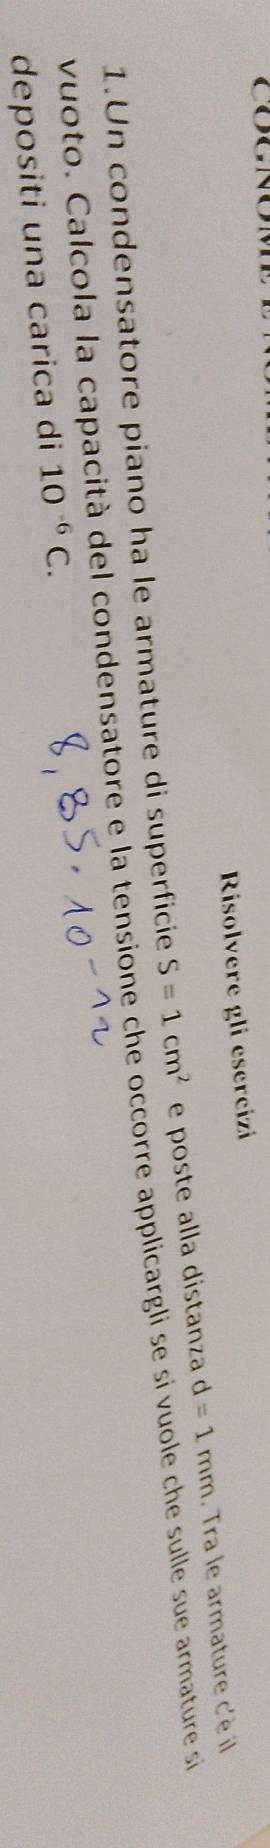 COGNOME E
Risolvere gli esercizi
1.Un condensatore piano ha le armature di superficie S = 1 cm² e poste alla distanza d = 1 mm. Tra le armature c'è il
vuoto. Calcola la capacità del condensatore e la tensione che occorre applicargli se si vuole che sulle sue armature si
depositi una carica di 10⁻⁶ C.
8,85·10-12